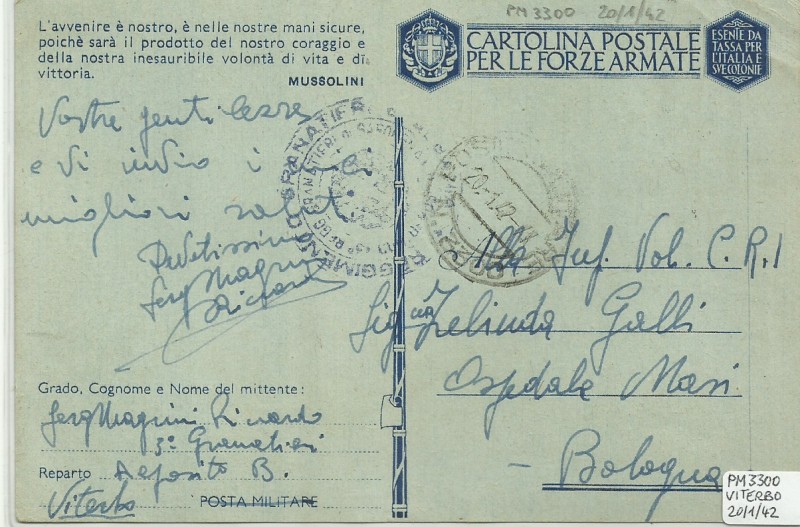 PM3300 20/1/42
L'avvenire è nostro, è nelle nostre mani sicure,
poichè sarà il prodotto del nostro coraggio e
della nostra inesauribile volontà di vita e di
vittoria.
MUSSOLINI
CARTOLINA POSTALE
PER LE FORZE ARMATE
ESENTE DA
TASSA PER
L'ITALIA E
SVE COLONIE
Vostre gentilezze
e Vi invio i miei
migliori saluti
Devotissimo
Serg Magrini
Ricardo
REGGIMENTO GRANATIERI
20.1.42
Alla Inf. Vol. C.R.I
Sig.na Zelinda Galli
Ospedale Masi
- Bologna
Grado, Cognome e Nome del mittente:
Serg Magrini Ricardo
3° Granatieri
Reparto Deposito B.
Viterbo POSTA MILITARE
PM3300
VITERBO
20/1/42